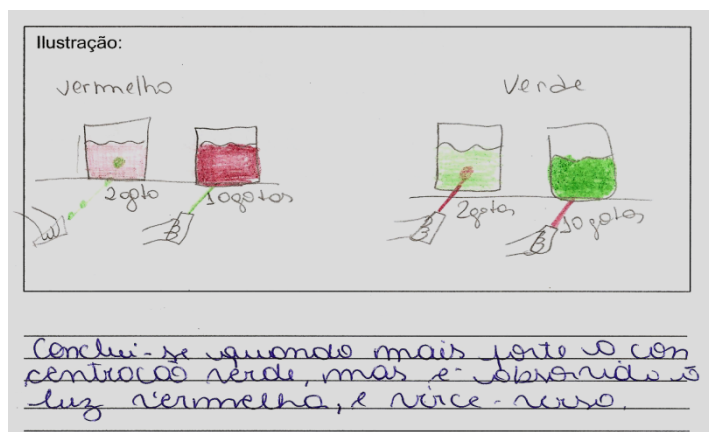 Ilustração:
vermelho
Verde
2goto
10gotas
2gotas
10 gotas
Conclui-se quando mais forte a con
centracão verde, mas é absorvida a
luz vermelha, e vice-verso.